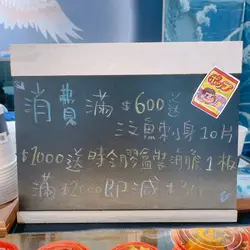 消費滿$600送
三文魚刺身10片
$1000送時令盒裝海膽1板
滿$2000即減